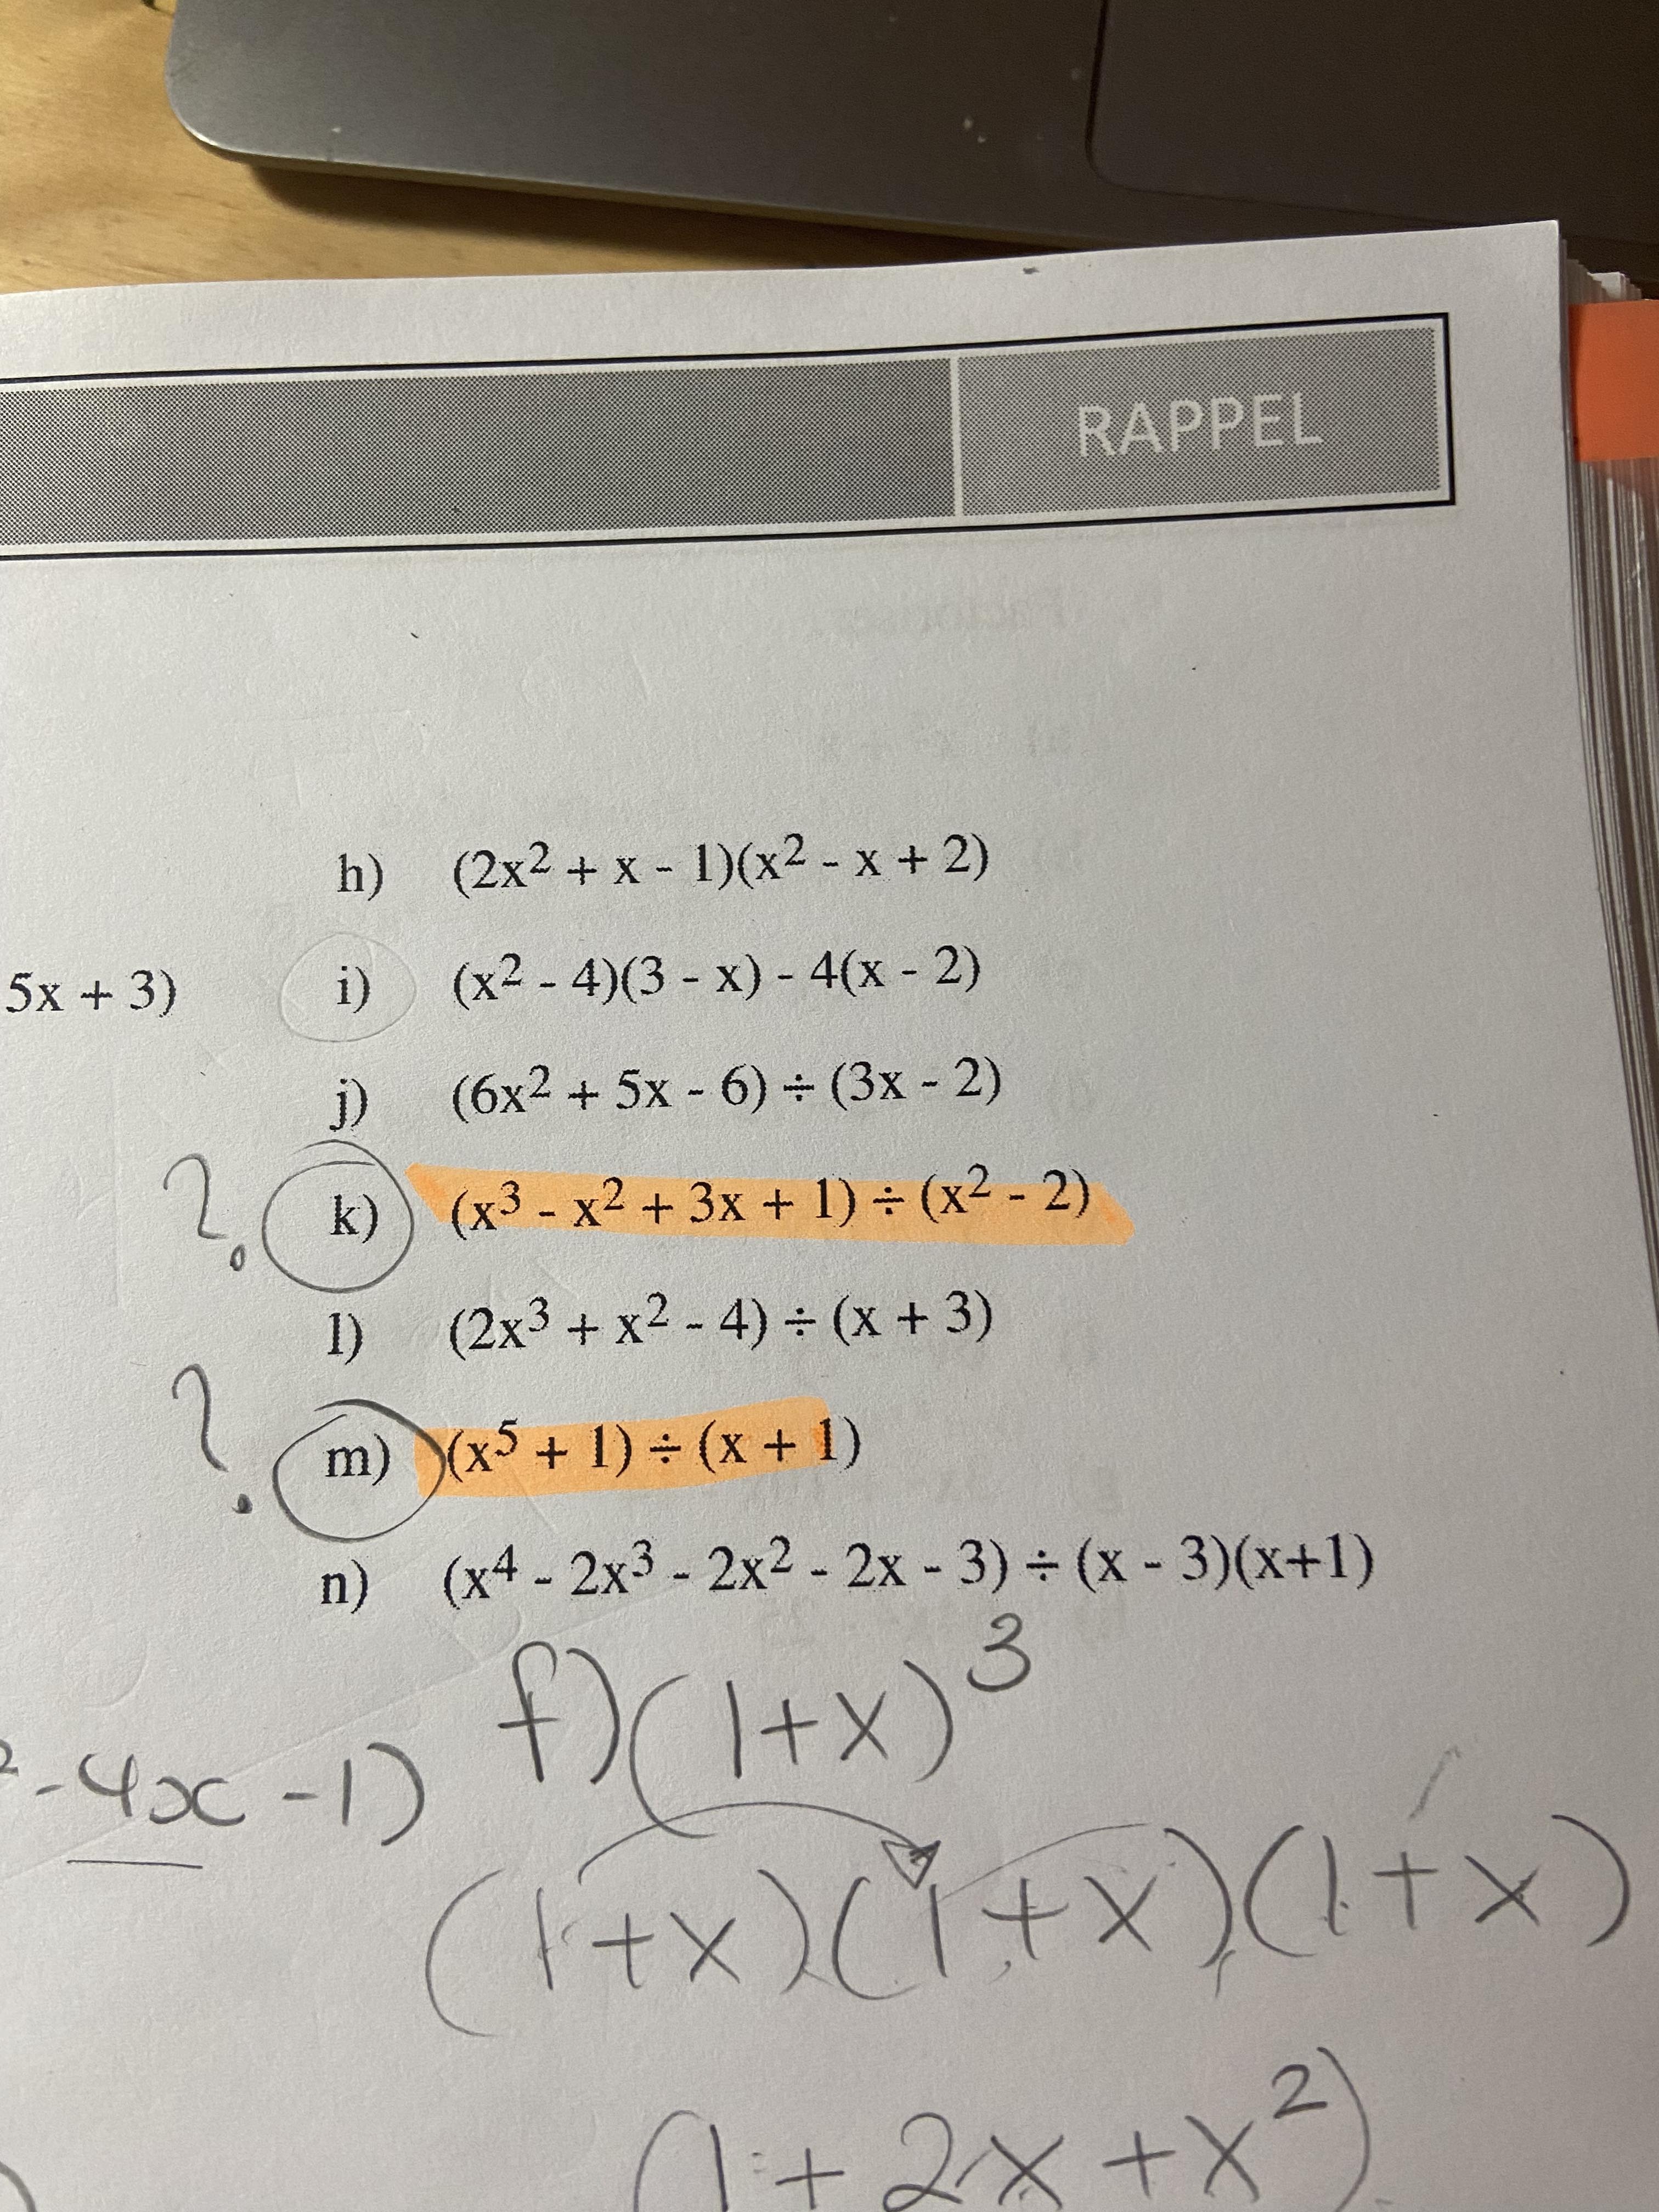 RAPPEL
h) (2x² + x - 1)(x² - x + 2)
5x + 3) i) (x² - 4)(3 - x) - 4(x - 2)
j) (6x² + 5x - 6) ÷ (3x - 2)
? k) (x³ - x² + 3x + 1) ÷ (x² - 2)
l) (2x³ + x² - 4) ÷ (x + 3)
? m) (x⁵ + 1) ÷ (x + 1)
n) (x⁴ - 2x³ - 2x² - 2x - 3) ÷ (x - 3)(x+1)
f) (1+x)³
² -4x -1)
(1+x)(1+x)(1+x)
(1+2x+x²)